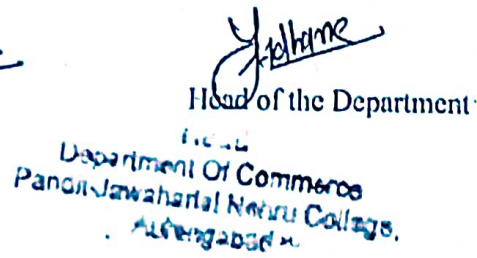 Head of the Department
Head
Department Of Commerce
Pandit Jawaharlal Nehru College,
Aurangabad